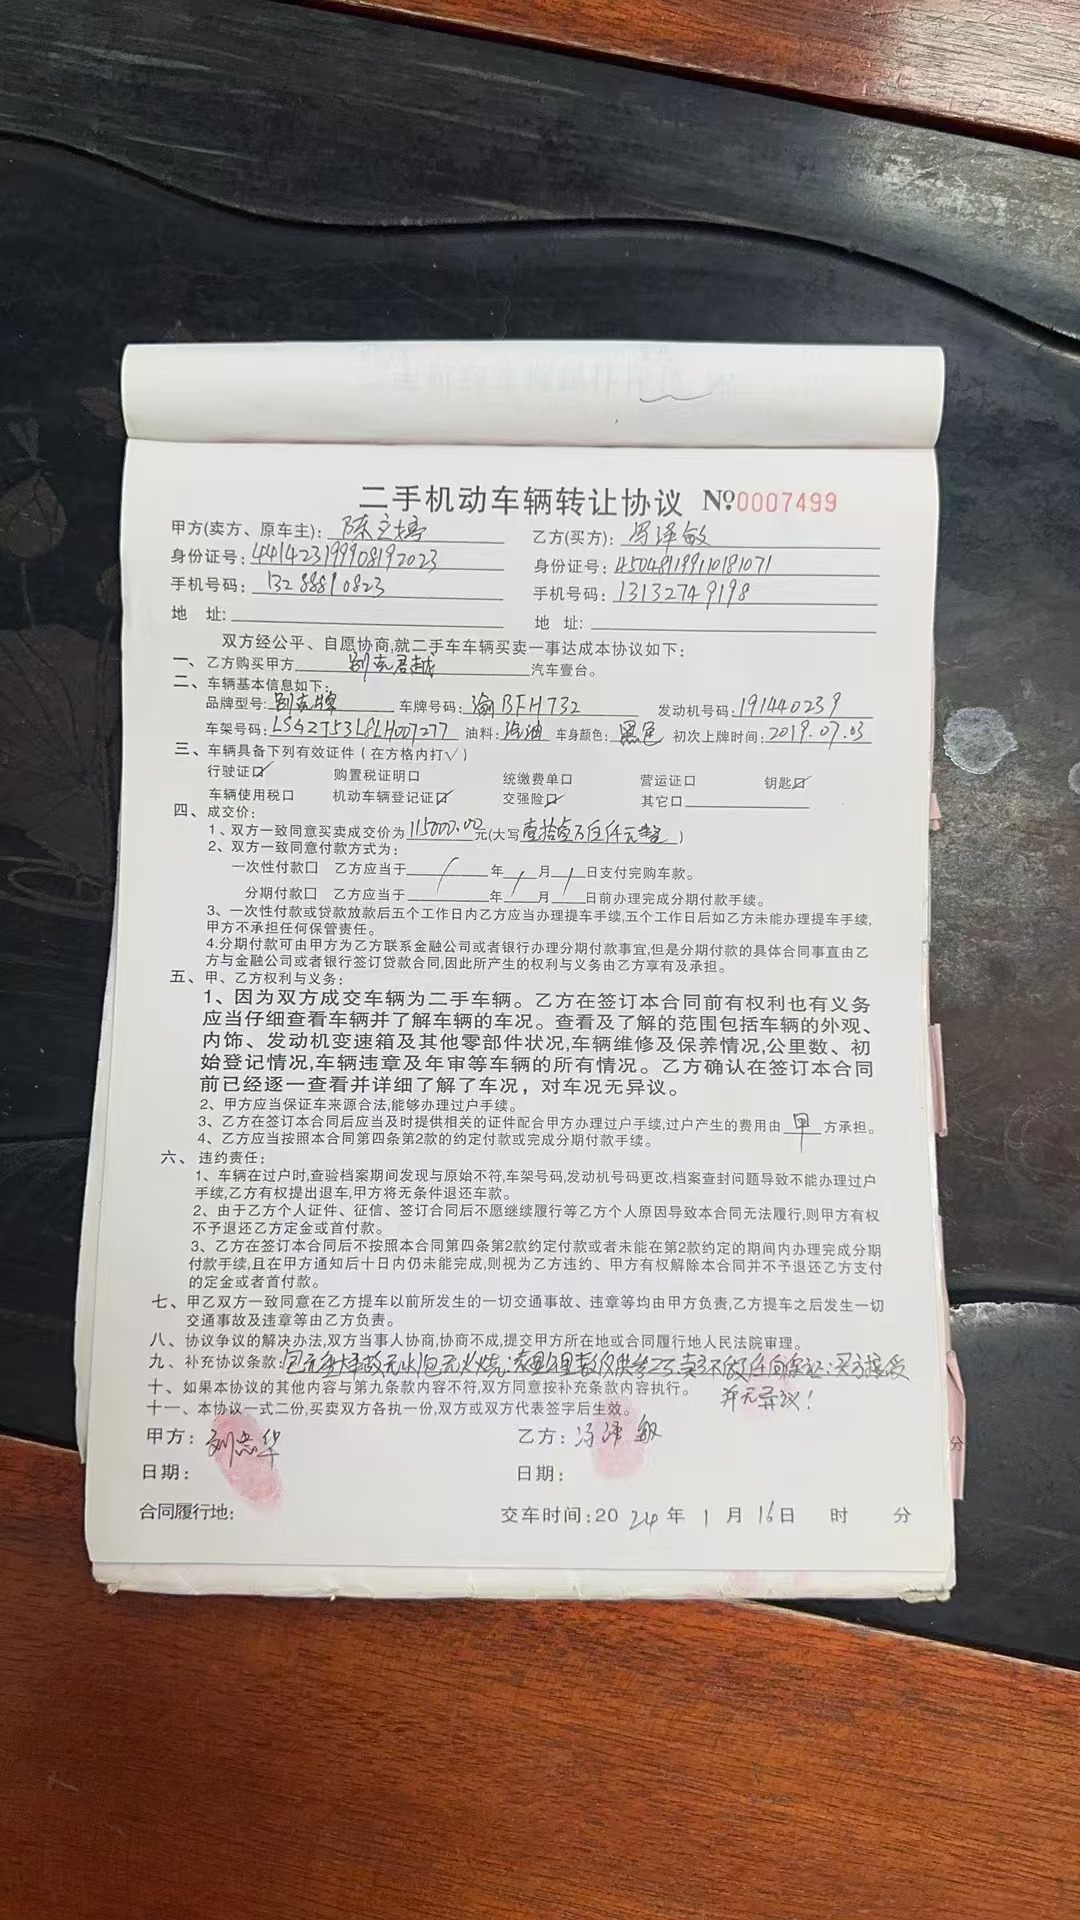 二手机动车辆转让协议 №0007499
甲方(卖方、原车主): 陈立婷 乙方(买方): 冯泽敏
身份证号: 441423199908192023 身份证号: 450481199110181071
手机号码: 13288890823 手机号码: 13132749198
地 址: 地 址:
双方经公平、自愿协商,就二手车车辆买卖一事达成本协议如下:
一、乙方购买甲方 别克君越 汽车壹台。
二、车辆基本信息如下:
品牌型号: 别克牌 车牌号码: 渝BFH732 发动机号码: 191440239
车架号码: LSGZT53L8LH007277 油料: 汽油 车身颜色: 黑色 初次上牌时间: 2019.07.03
三、车辆具备下列有效证件(在方格内打√)
行驶证☑ 购置税证明口 统缴费单口 营运证口 钥匙☑
车辆使用税口 机动车辆登记证☑ 交强险☑ 其它口
四、成交价:
1、双方一致同意买卖成交价为 115000.00 元(大写 壹拾壹万伍仟元整 )
2、双方一致同意付款方式为:
一次性付款口 乙方应当于 / 年 / 月 / 日支付完购车款。
分期付款口 乙方应当于 年 月 日前办理完成分期付款手续。
3、一次性付款或贷款放款后五个工作日内乙方应当办理提车手续,五个工作日后如乙方未能办理提车手续,
甲方不承担任何保管责任。
4.分期付款可由甲方为乙方联系金融公司或者银行办理分期付款事宜,但是分期付款的具体合同事直由乙
方与金融公司或者银行签订贷款合同,因此所产生的权利与义务由乙方享有及承担。
五、甲、乙方权利与义务:
1、因为双方成交车辆为二手车辆。乙方在签订本合同前有权利也有义务
应当仔细查看车辆并了解车辆的车况。查看及了解的范围包括车辆的外观、
内饰、发动机变速箱及其他零部件状况,车辆维修及保养情况,公里数、初
始登记情况,车辆违章及年审等车辆的所有情况。乙方确认在签订本合同
前已经逐一查看并详细了解了车况，对车况无异议。
2、甲方应当保证车来源合法,能够办理过户手续。
3、乙方在签订本合同后应当及时提供相关的证件配合甲方办理过户手续,过户产生的费用由 甲 方承担。
4、乙方应当按照本合同第四条第2款的约定付款或完成分期付款手续。
六、违约责任:
1、车辆在过户时,查验档案期间发现与原始不符,车架号码,发动机号码更改,档案查封问题导致不能办理过户
手续,乙方有权提出退车,甲方将无条件退还车款。
2、由于乙方个人证件、征信、签订合同后不愿继续履行等乙方个人原因导致本合同无法履行,则甲方有权
不予退还乙方定金或首付款。
3、乙方在签订本合同后不按照本合同第四条第2款约定付款或者未能在第2款约定的期间内办理完成分期
付款手续,且在甲方通知后十日内仍未能完成,则视为乙方违约、甲方有权解除本合同并不予退还乙方支付
的定金或者首付款。
七、甲乙双方一致同意在乙方提车以前所发生的一切交通事故、违章等均由甲方负责,乙方提车之后发生一切
交通事故及违章等由乙方负责。
八、协议争议的解决办法,双方当事人协商,协商不成,提交甲方所在地或合同履行地人民法院审理。
九、补充协议条款: 包无重大事故无水泡无火烧.表显公里数仅供参考卖方不做任何保证:买方接受
十、如果本协议的其他内容与第九条款内容不符,双方同意按补充条款内容执行。 并无异议!
十一、本协议一式二份,买卖双方各执一份,双方或双方代表签字后生效。
甲方: 刘忠华 乙方: 冯泽敏
日期: 日期:
合同履行地: 交车时间:20 24 年 1 月 16日 时 分
分